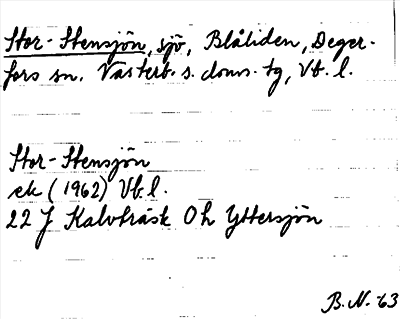 Stor-Stensjön, sjö, Blåliden, Deger-
fors sn. Västerb. s. doms. tg, Vb. l.
Stor-Stensjön
ek (1962) Vb. l.
22 J Kalvträsk Oh Yttersjön
B.N. 63